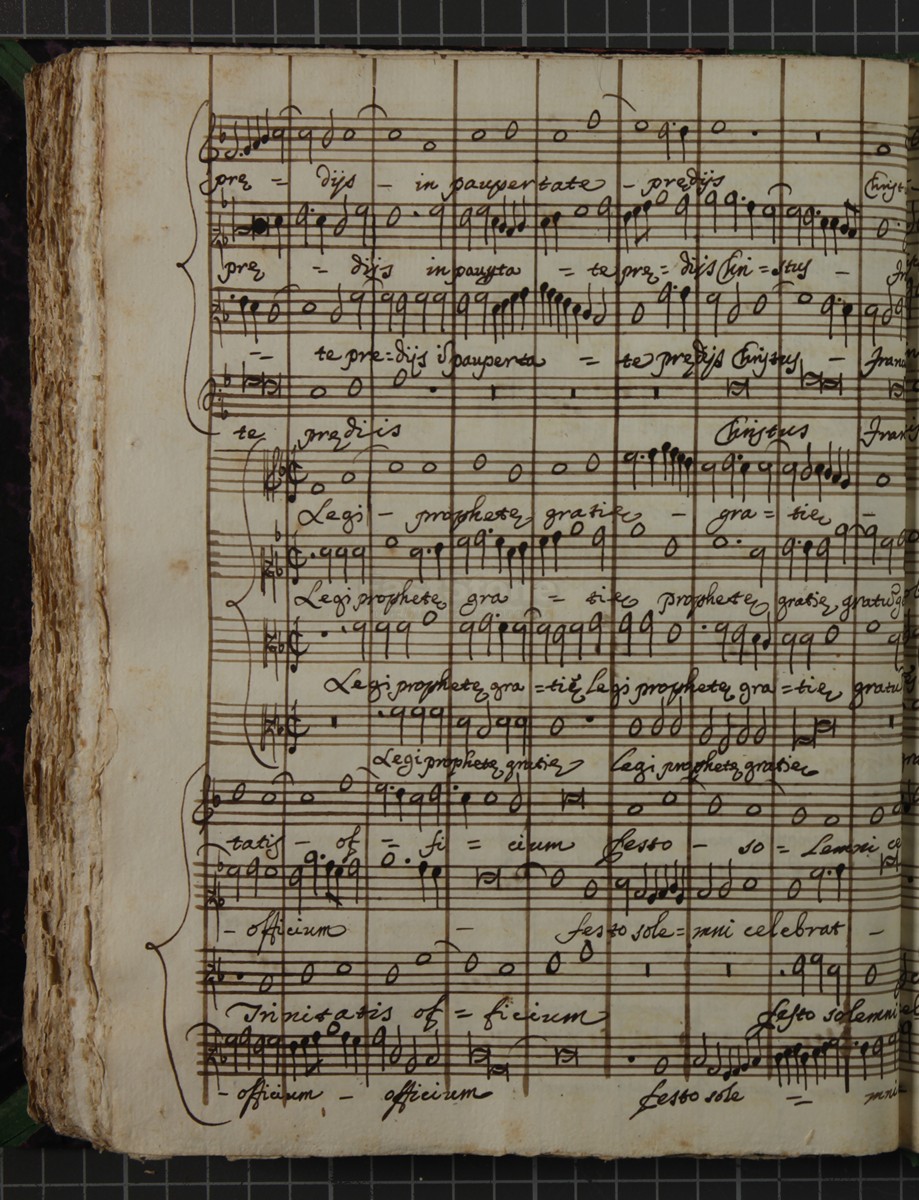 prę = dijs - in paupertate - prędijs Christ
prę = dijs in paupta = te prę = dijs Chri = stus -
- te pre = dijs i paupertа = te prędijs Christus - Fran
te prędiis Christus Fran
Legi - prophetę gratię - gra = tię -
Legi prophetę gra = tię prophetę gratię, gratię
Legi prophetę gra = tię legi prophetę gra = tię gratię
Legi prophetę gratię legi prophetę gratię
tatis - of = fi = cium festo - so = lemni ce
- officium - festo sole = mni celebrat -
Trinitatis of = ficium festo solemni
- officium - officium festo sole = mni